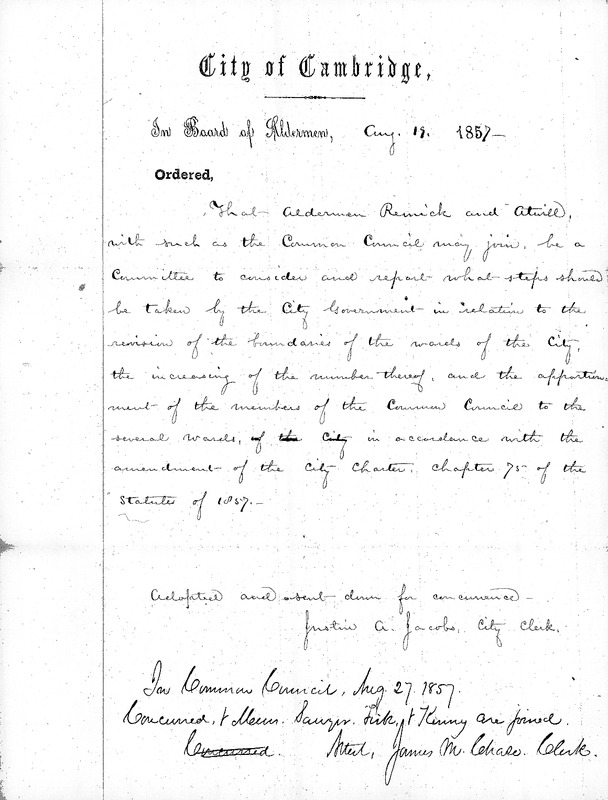 City of Cambridge,
In Board of Aldermen, Aug. 19. 1857—
Ordered,
That Aldermen Remick and Atwill,
with such as the Common Council may join, be a
Committee to consider and report what steps should
be taken by the City Government in relation to the
revision of the boundaries of the wards of the City,
the increasing of the number thereof, and the apportion-
ment of the members of the Common Council to the
several wards, of the City in accordance with the
amendment of the City Charter. Chapter 75 of the
Statutes of 1857.—
Adopted and sent down for concurrence—
Justin A. Jacobs, City Clerk.
In Common Council, Aug 27. 1857.
Concurred, & Messrs. Sawyer. Fisk, & Kenny are joined.
Concurred. Attest, James M. Chase. Clerk.